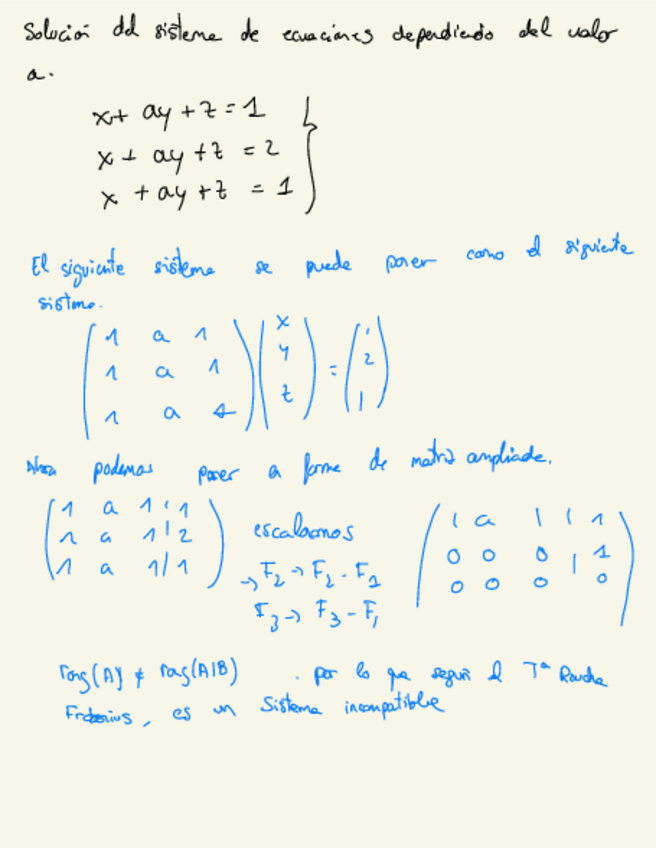 Solución del sistema de ecuaciones dependiendo del valor
a.
x + ay + z = 1
x + ay + z = 2
x + ay + z = 1
El siguiente sistema se puede poner como el siguiente
sistema.
( 1 a 1 ) ( x ) ( 1 )
( 1 a 1 ) ( y ) = ( 2 )
( 1 a 1 ) ( z ) ( 1 )
Ahora podemos poner a forma de matriz ampliada.
( 1 a 1 | 1 ) ( 1 a 1 | 1 )
( 1 a 1 | 2 ) escalonamos ( 0 0 0 | 1 )
( 1 a 1 | 1 ) → F₂ → F₂ - F₁ ( 0 0 0 0 )
F₃ → F₃ - F₁
rang(A) ≠ rag(A|B) . por lo que según el Tª Rouche
Frobenius, es un Sistema incompatible